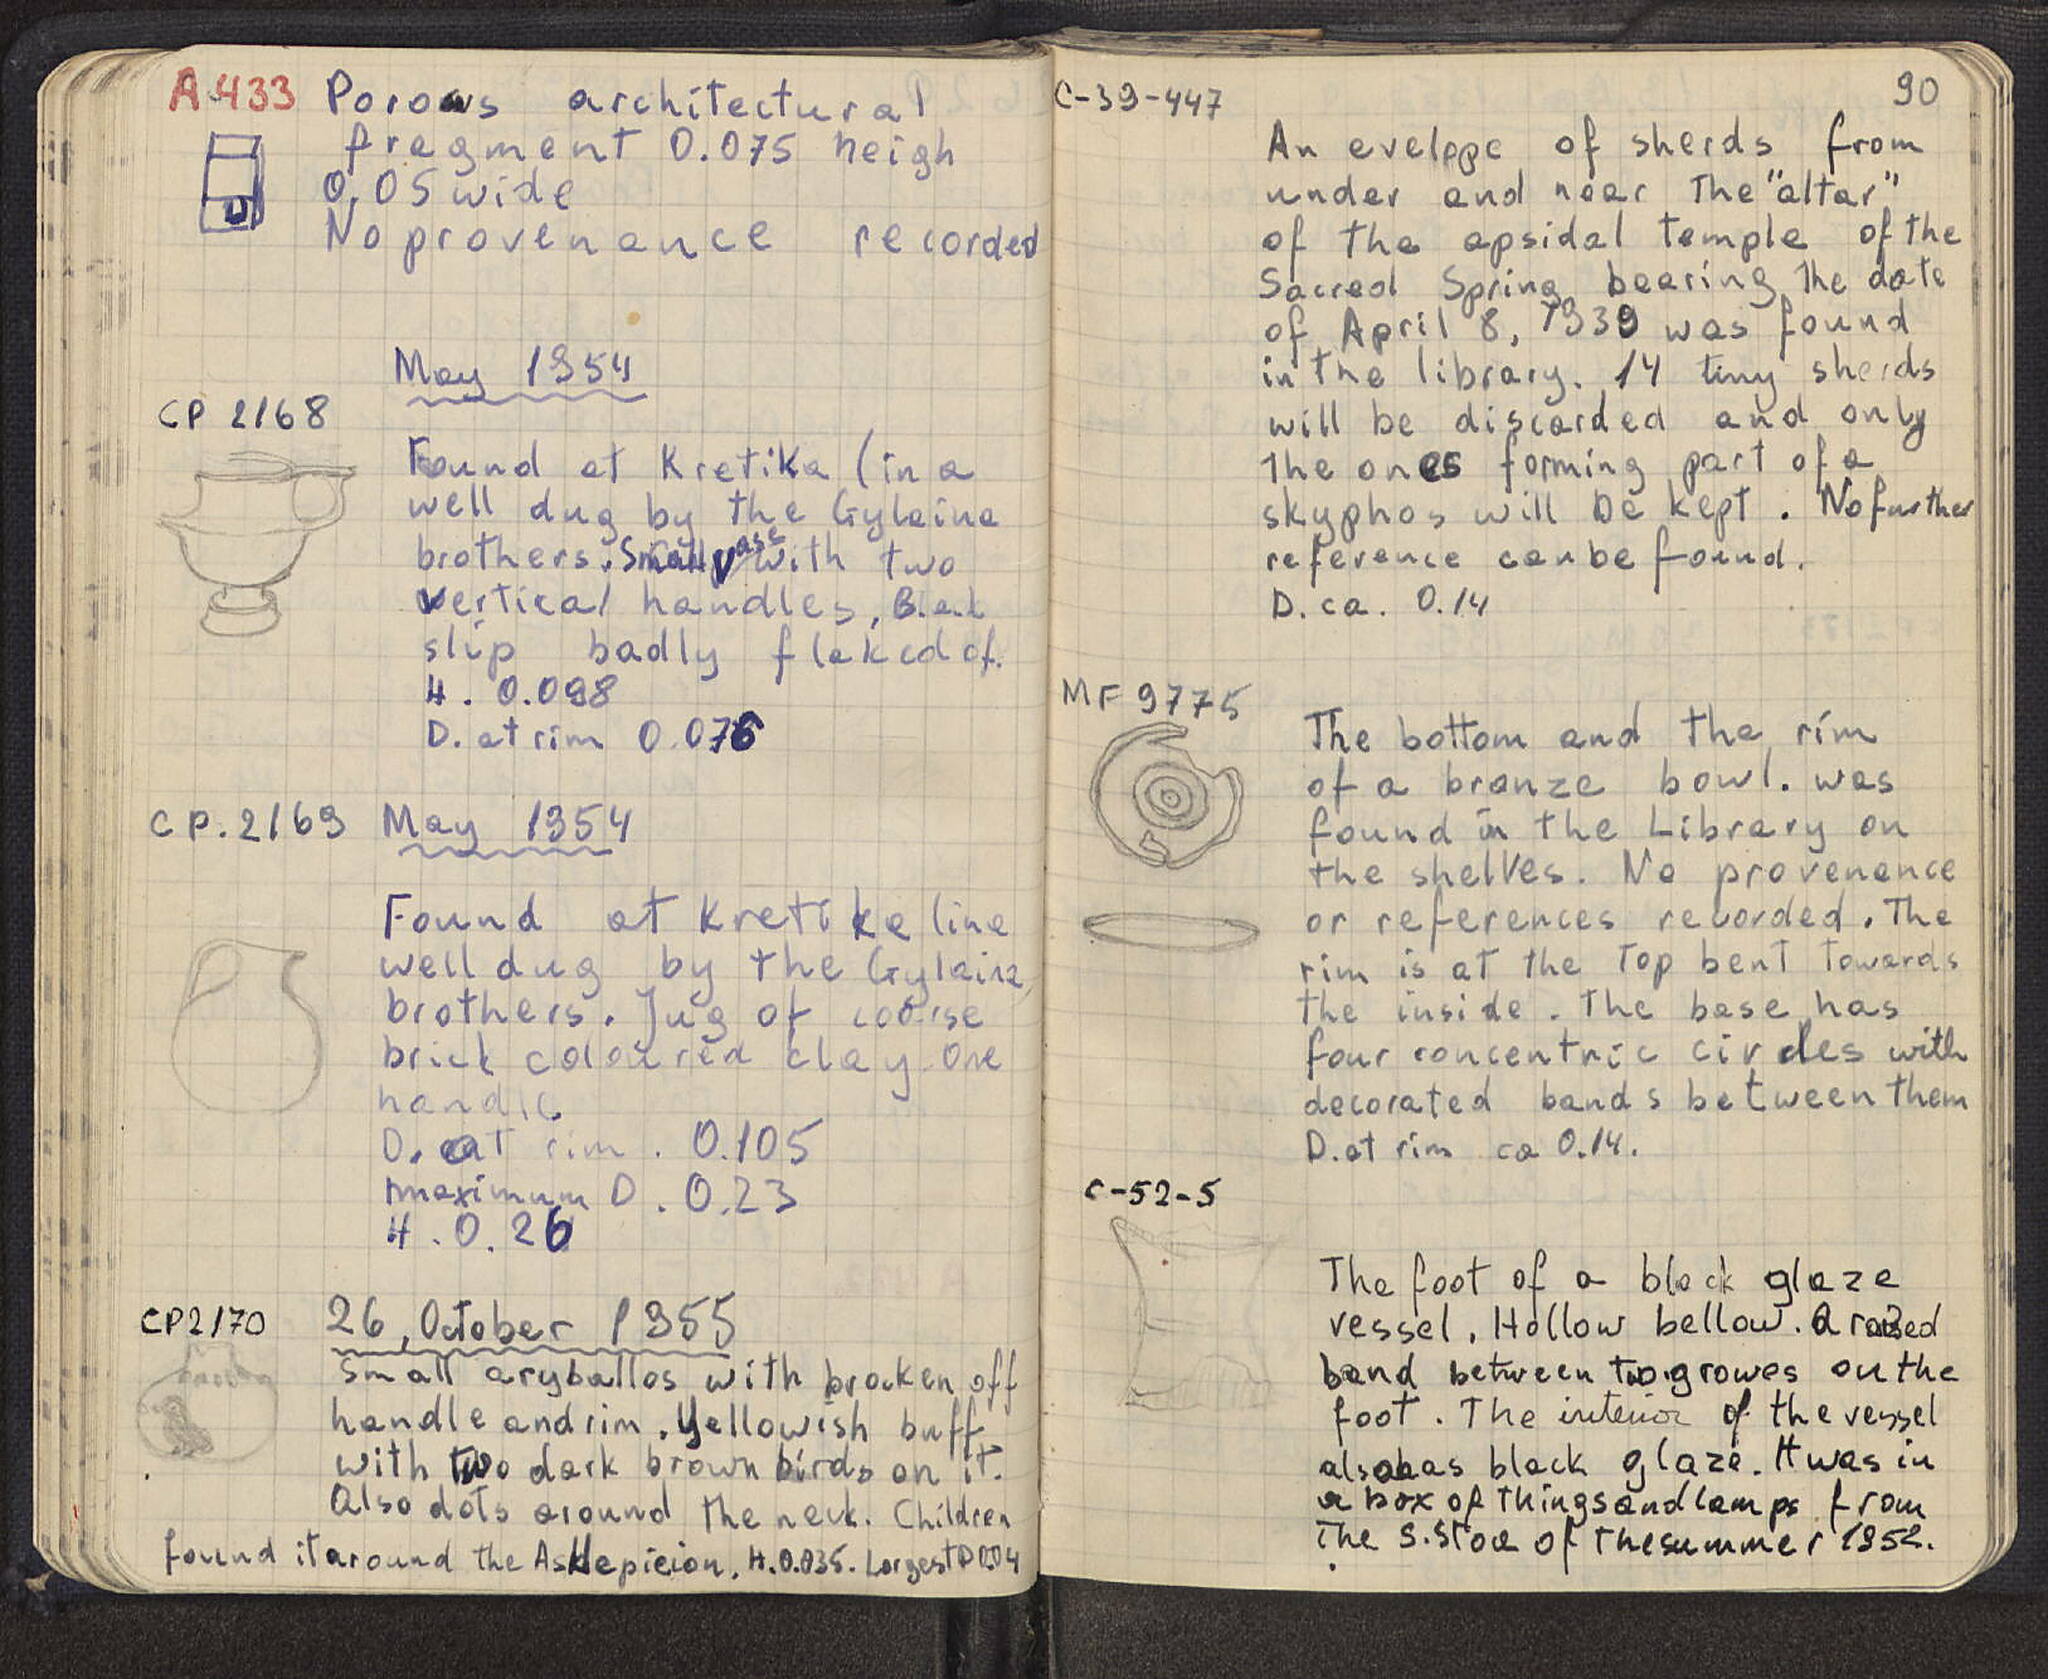 A 433 Porous architectural
fragment 0.075 heigh
0.05 wide
No provenance recorded
May 1954
CP 2168
Found at Kretika (in a
well dug by the Gylaina
brothers. Small vass with two
vertical handles, B.a.l
slip badly flaked of.
H. 0.098
D. at rim 0.076
CP. 2169 May 1954
Found at Kretika (in a
well dug by the Gylaina
brothers. Jug of coarse
brick coloured clay. One
handle.
D. at rim. 0.105
maximum D. 0.23
H. 0.26
CP 2170 26, October 1955
Small aryballos with brocken off
handle and rim. Yellowish buff
with two dark brown birds on it.
Also dots around the neck. Children
found it around the Asklepieion. H. 0.035. Largest D 0.04
90
C-39-447
An eveloppe of sherds from
under and near the "altar"
of the apsidal temple of the
Sacred Spring bearing the date
of April 8, 1939 was found
in the library. 14 tiny sherds
will be discarded and only
the ones forming part of a
skyphos will be kept. No further
reference can be found.
D. ca. 0.14
MF 9775
The bottom and the rim
of a bronze bowl. was
found in the Library on
the shelves. No provenance
or references recorded. The
rim is at the top bent towards
the inside. The base has
four concentric circles with
decorated bands between them
D. at rim ca 0.14.
C-52-5
The foot of a black glaze
vessel. Hollow bellow. A raised
band between two growes on the
foot. The interior of the vessel
also has black glaze. It was in
a box of things and lamps from
the S. Stoa of the summer 1952.